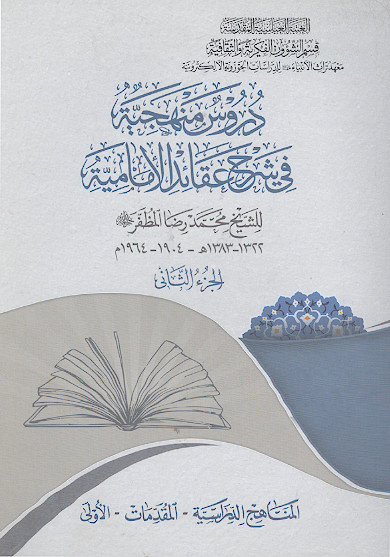 العتبة العباسية المقدسة
قسم الشؤون الفكرية والثقافية
معهد تراث الأنبياء للدراسات الحوزوية الالكترونية
دروس منهجية
في شرح عقائد الإمامية
للشيخ محمد رضا المظفر
١٣٢٢-١٣٨٣هـ - ١٩٠٤-١٩٦٤م
الجزء الثاني
المناهج الدراسية - المقدمات - الأولى